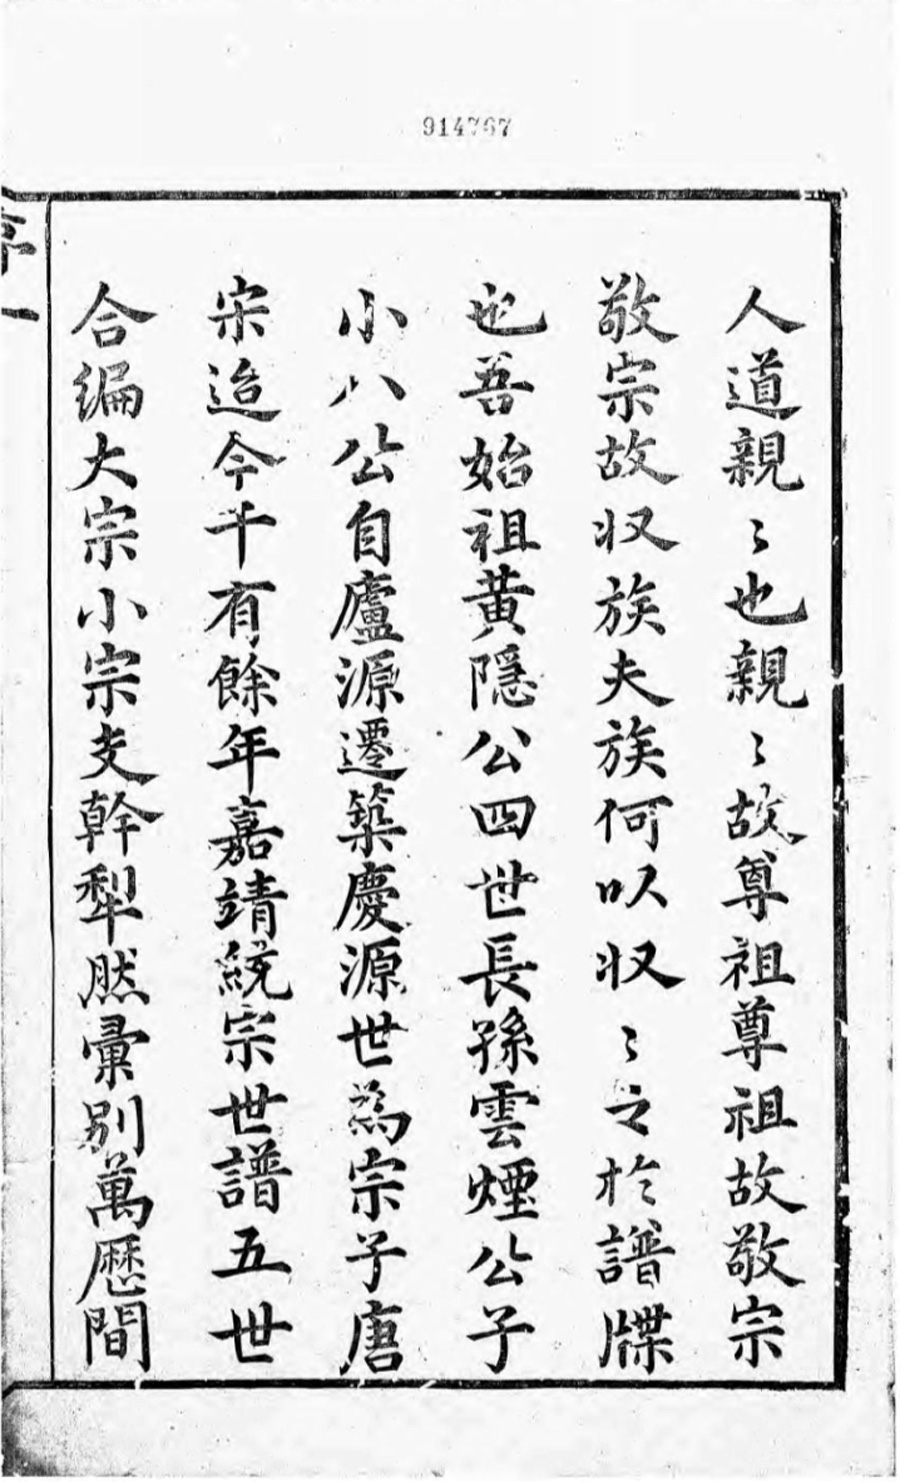 914767
人道親〻也親〻故尊祖尊祖故敬宗
敬宗故収族夫族何以収〻之於譜牒
也吾始祖黄隱公四世長孫雲煙公子
小八公自廬源遷築慶源世為宗子唐
宋迨今千有餘年嘉靖統宗世譜五世
合編大宗小宗支幹犁然彙別萬歷間
序一